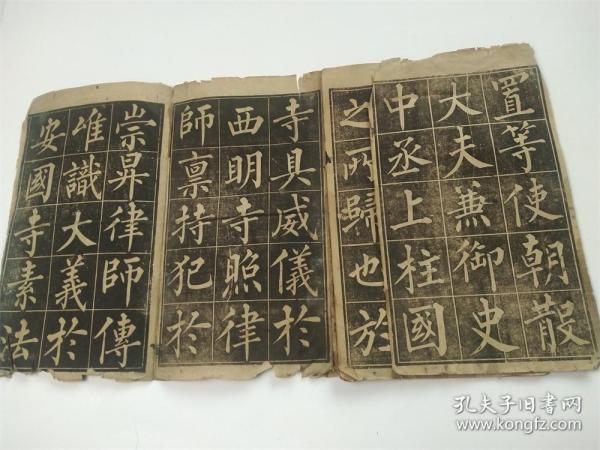 置等使朝散
大夫兼御史
中丞上柱國
之所歸也於
寺具威儀於
西明寺照律
師禀持犯於
崇昇律師傳
唯識大義於
安國寺素法
孔夫子旧书网
www.kongfz.com